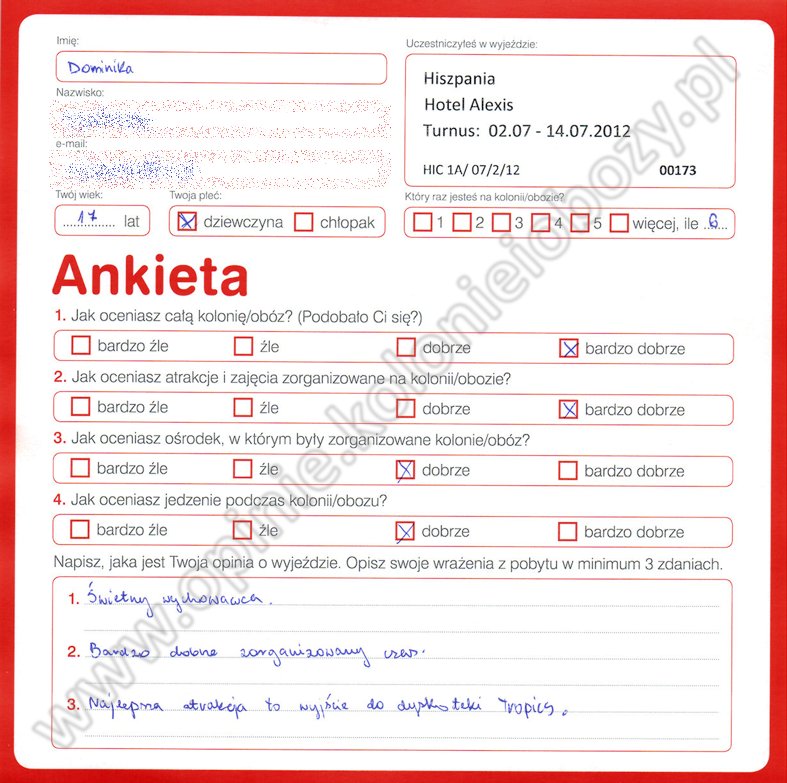 Imię:
Dominika
Nazwisko:
e-mail:
Twój wiek:
17 lat
Twoja płeć:
dziewczyna chłopak
Uczestniczyłeś w wyjeździe:
Hiszpania
Hotel Alexis
Turnus: 02.07 - 14.07.2012
HIC 1A/ 07/2/12 00173
Który raz jesteś na kolonii/obozie?
1 2 3 4 5 więcej, ile 6
Ankieta
1. Jak oceniasz całą kolonię/obóz? (Podobało Ci się?)
bardzo źle źle dobrze bardzo dobrze
2. Jak oceniasz atrakcje i zajęcia zorganizowane na kolonii/obozie?
bardzo źle źle dobrze bardzo dobrze
3. Jak oceniasz ośrodek, w którym były zorganizowane kolonie/obóz?
bardzo źle źle dobrze bardzo dobrze
4. Jak oceniasz jedzenie podczas kolonii/obozu?
bardzo źle źle dobrze bardzo dobrze
Napisz, jaka jest Twoja opinia o wyjeździe. Opisz swoje wrażenia z pobytu w minimum 3 zdaniach.
1. Świetny wychowawca.
2. Bardzo dobrze zorganizowany czas.
3. Najlepsza atrakcja to wyjście do dyskoteki Tropics.
www.opinie.kolonieiobozy.pl